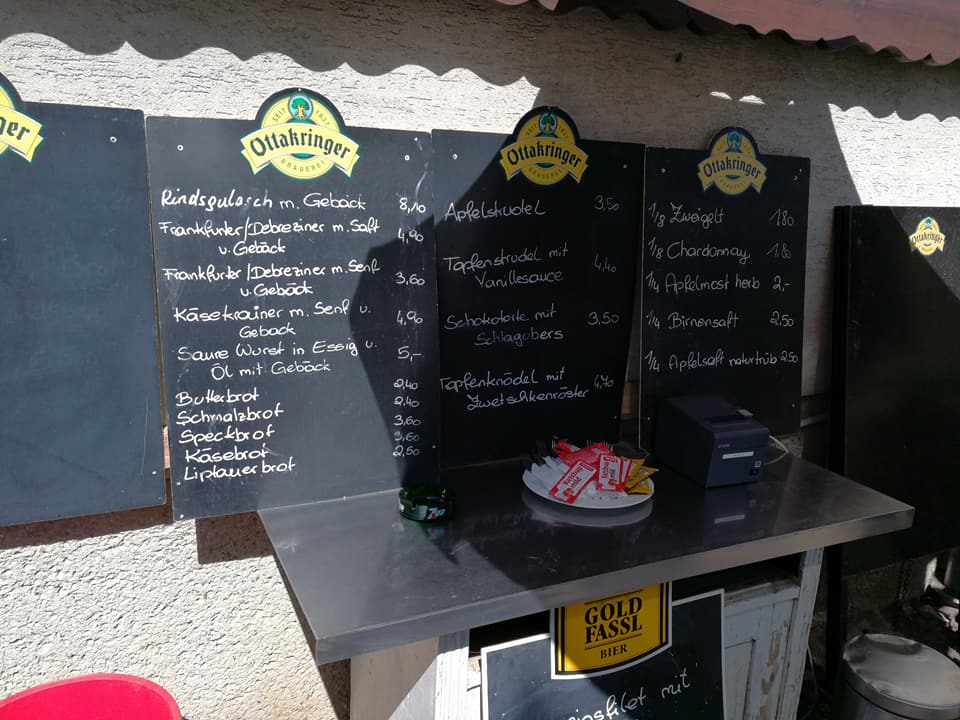 er
SEIT 1837
Ottakringer
BRAUEREI
Rindsgulasch m. Gebäck 8,10
Frankfurter/Debreziner m. Saft
u. Gebäck 4,90
Frankfurter/Debreziner m. Senf
u. Gebäck 3,60
Käsekrainer m. Senf u.
Geback 4,90
Saure Wurst in Essig u.
Öl mit Gebäck 5,-
Butterbrot 2,40
Schmalzbrot 2,40
Speckbrot 3,60
Käsebrot 3,60
Liptauerbrot 2,50
SEIT 1837
Ottakringer
BRAUEREI
Apfelstrudel 3,50
Topfenstrudel mit
Vanillesauce 4,40
Schokotorte mit
Schlagobers 3,50
Topfenknödel mit
Zwetschkenröster 4,70
Ottakringer
BRAUEREI
1/8 Zweigelt 1.80
1/8 Chardonnay 1.80
1/4 Apfelmost herb 2,-
1/4 Birnensaft 2,50
1/4 Apfelsaft naturtrüb 2.50
Ottakringer
7up
Ketchup
mild
GOLD
FASSL
BIER
mit